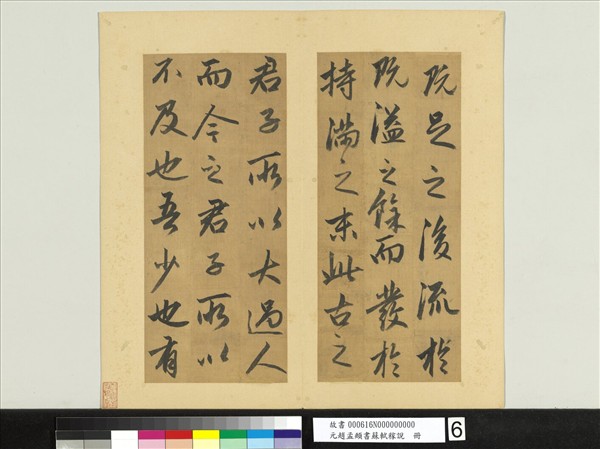 既足之後流於
既溢之餘而發於
持滿之末此古之
君子所以大過人
而今之君子所以
不及也吾少也有
故書 000616N000000000
元趙孟頫書蘇軾稼說 冊
6